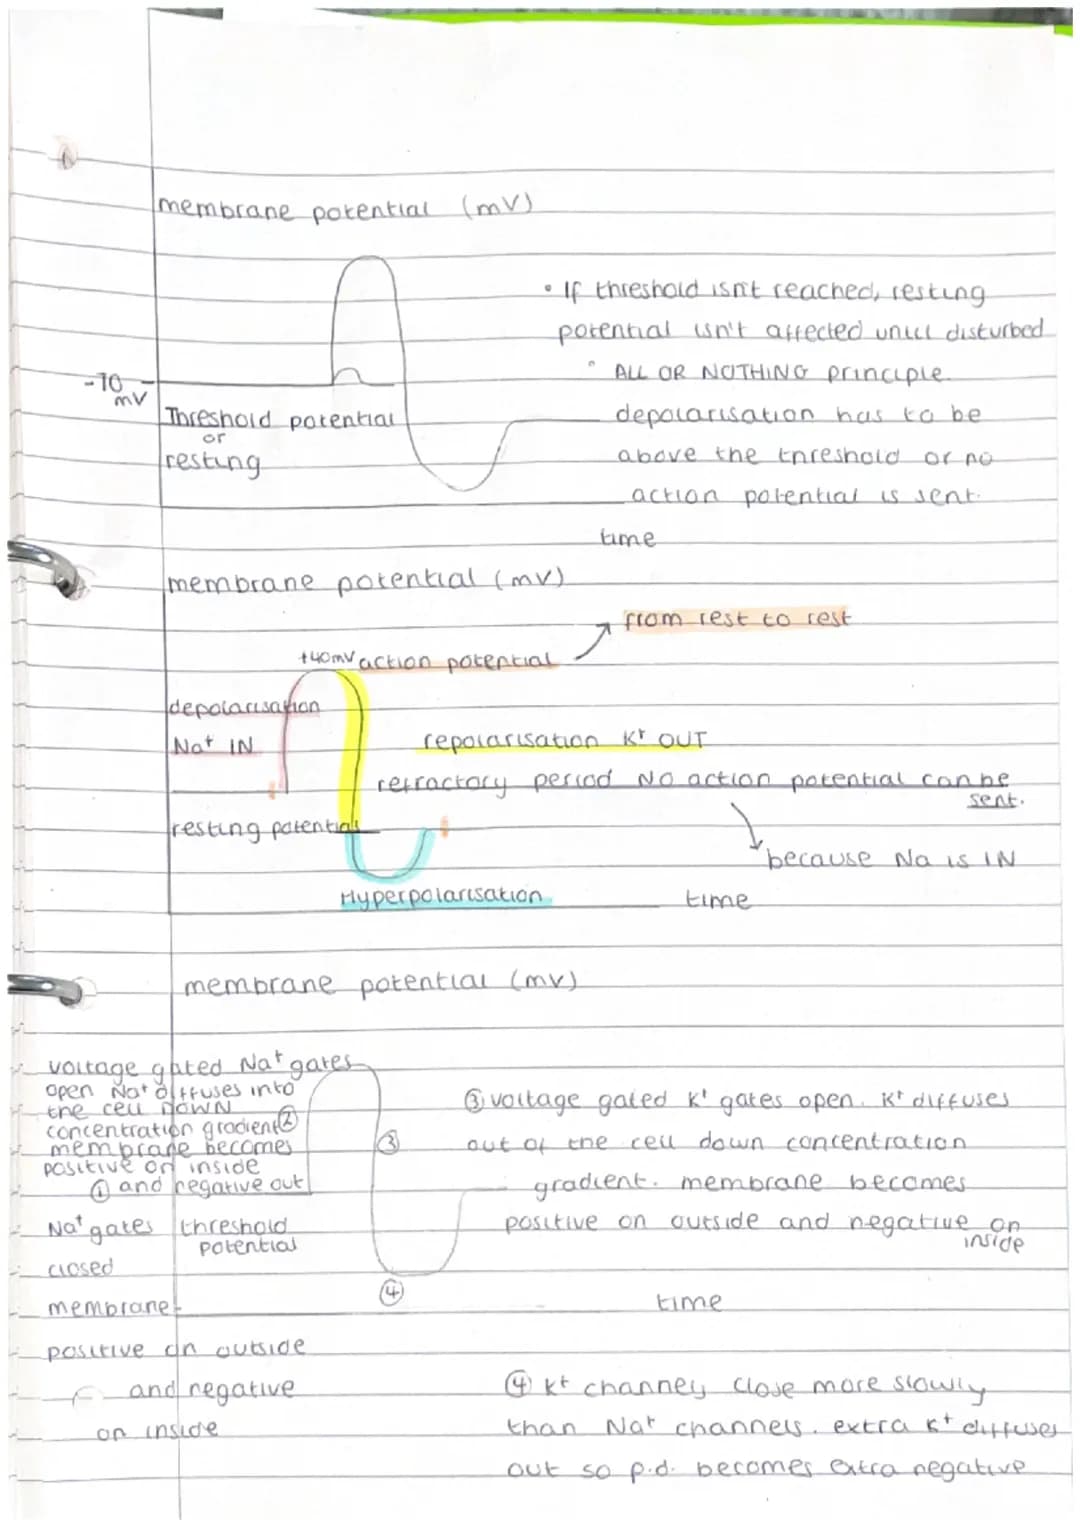 membrane potential (mV)
• If threshold isn't reached, resting
potential isn't affected until disturbed
-70
mV
° ALL OR NOTHING principle.
Threshold potential
or
resting
depolarisation has to be
above the threshold or no
action potential is sent.
time
membrane potential (mV)
from rest to rest
+40mV action potential
depolarisation
Na+ IN
repolarisation K+ OUT
refractory period NO action potential can be
sent.
resting potential
because Na is IN
Hyperpolarisation
time
membrane potential (mV)
voltage gated Na+ gates
open Na+ diffuses into
the cell DOWN
concentration gradient ②
membrane becomes
positive on inside
① and negative out
Na+ gates
closed
membrane
positive on outside
and negative
on inside
threshold
potential
③
④
③ voltage gated K+ gates open. K+ diffuses
out of the cell down concentration
gradient. membrane becomes
positive on outside and negative on
inside
time
④ K+ channels close more slowly
than Na+ channels. extra K+ diffuses
out so p.d. becomes extra negative